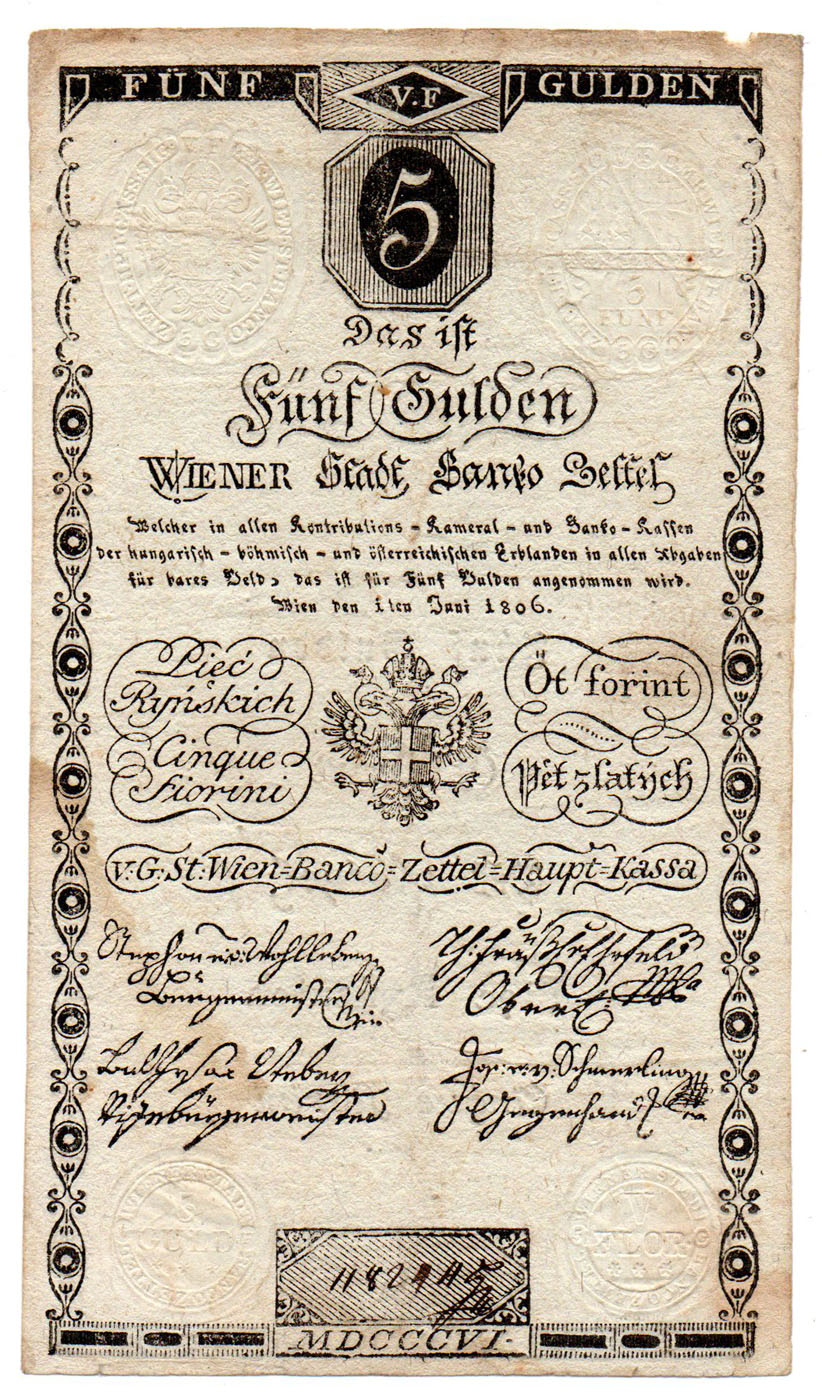 FÜNF V.F GULDEN
5
Das ist
Fünf Gulden
WIENER Stadt Banko Zettel
Welcher in allen Kontributions - Kameral - und Banko - Kassen
der hungarisch - böhmisch - und österreichischen Erblanden in allen Abgaben
für bares Geld, das ist für Fünf Gulden angenommen wird.
Wien den 1ten Juni 1806.
Pieć
Ryńskich
Cinque
Fiorini
Öt forint
Pět zlatých
V: G: St: Wien=Banco=Zettel=Haupt=Kassa
Stephan v: Wohlleben
Bürgermeister
Jos: v: Schmerling
Gegenhand
Vizebürgermeister
5
FÜNF
5
GULD
V
FLOR
MDCCCVI.